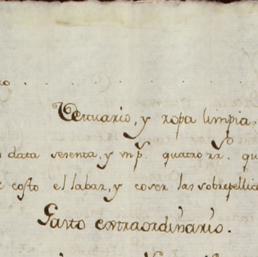 o.
Vestuario, y ropa limpia.
data sesenta, y mp. quatro rr. qu
costo el labar, y coser las sobrepellic
Gasto extraordinario.